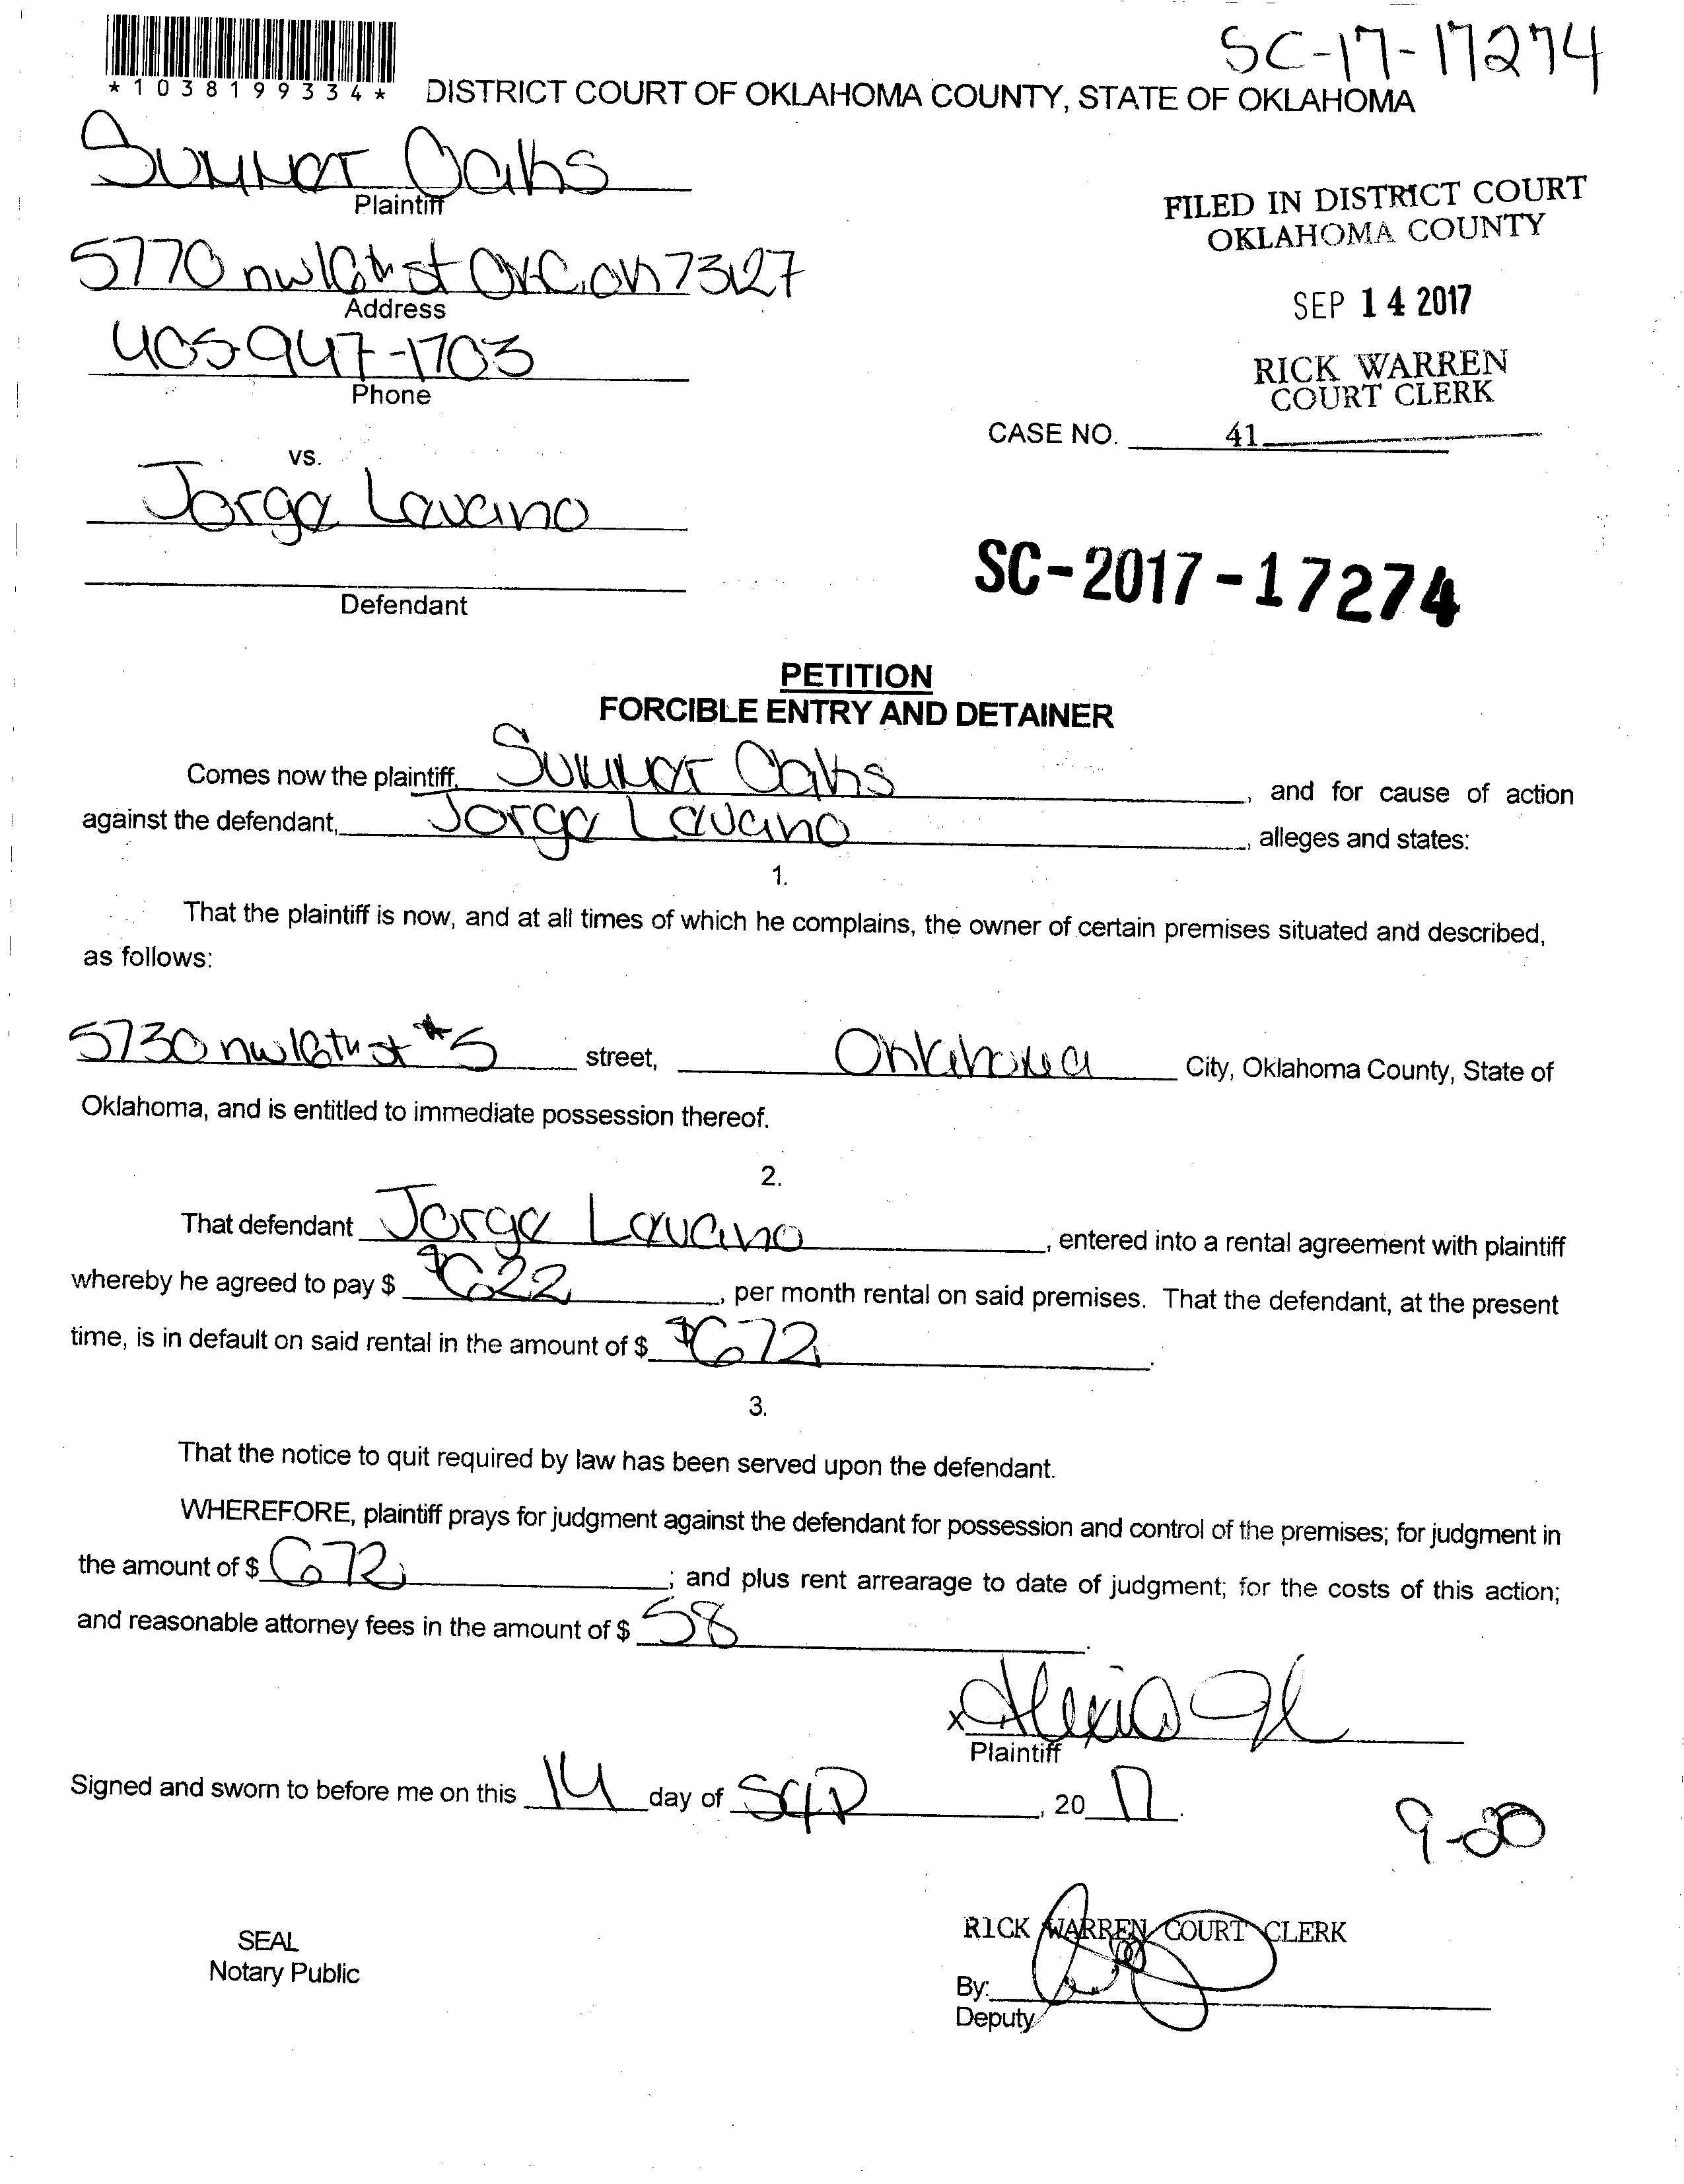 SC-17-17274
*1038199334*
DISTRICT COURT OF OKLAHOMA COUNTY, STATE OF OKLAHOMA
Summer Oaks
Plaintiff
FILED IN DISTRICT COURT
OKLAHOMA COUNTY
5770 nw 16th st OKC, OK 73127
Address
SEP 14 2017
405-947-1703
Phone
RICK WARREN
COURT CLERK
CASE NO. 41
vs.
Jorge Lavano
Defendant
SC-2017-17274
PETITION
FORCIBLE ENTRY AND DETAINER
Comes now the plaintiff, Summer Oaks, and for cause of action
against the defendant, Jorge Lavano, alleges and states:
1.
That the plaintiff is now, and at all times of which he complains, the owner of certain premises situated and described,
as follows:
5730 nw 16th st #5 street, Oklahoma City, Oklahoma County, State of
Oklahoma, and is entitled to immediate possession thereof.
2.
That defendant Jorge Lavano, entered into a rental agreement with plaintiff
whereby he agreed to pay $ $622, per month rental on said premises. That the defendant, at the present
time, is in default on said rental in the amount of $ $672.
3.
That the notice to quit required by law has been served upon the defendant.
WHEREFORE, plaintiff prays for judgment against the defendant for possession and control of the premises; for judgment in
the amount of $ 672; and plus rent arrearage to date of judgment; for the costs of this action;
and reasonable attorney fees in the amount of $ 58.
x Alexia
Plaintiff
Signed and sworn to before me on this 14 day of Sep, 20 17.
9-20
SEAL
Notary Public
RICK WARREN COURT CLERK
By:
Deputy